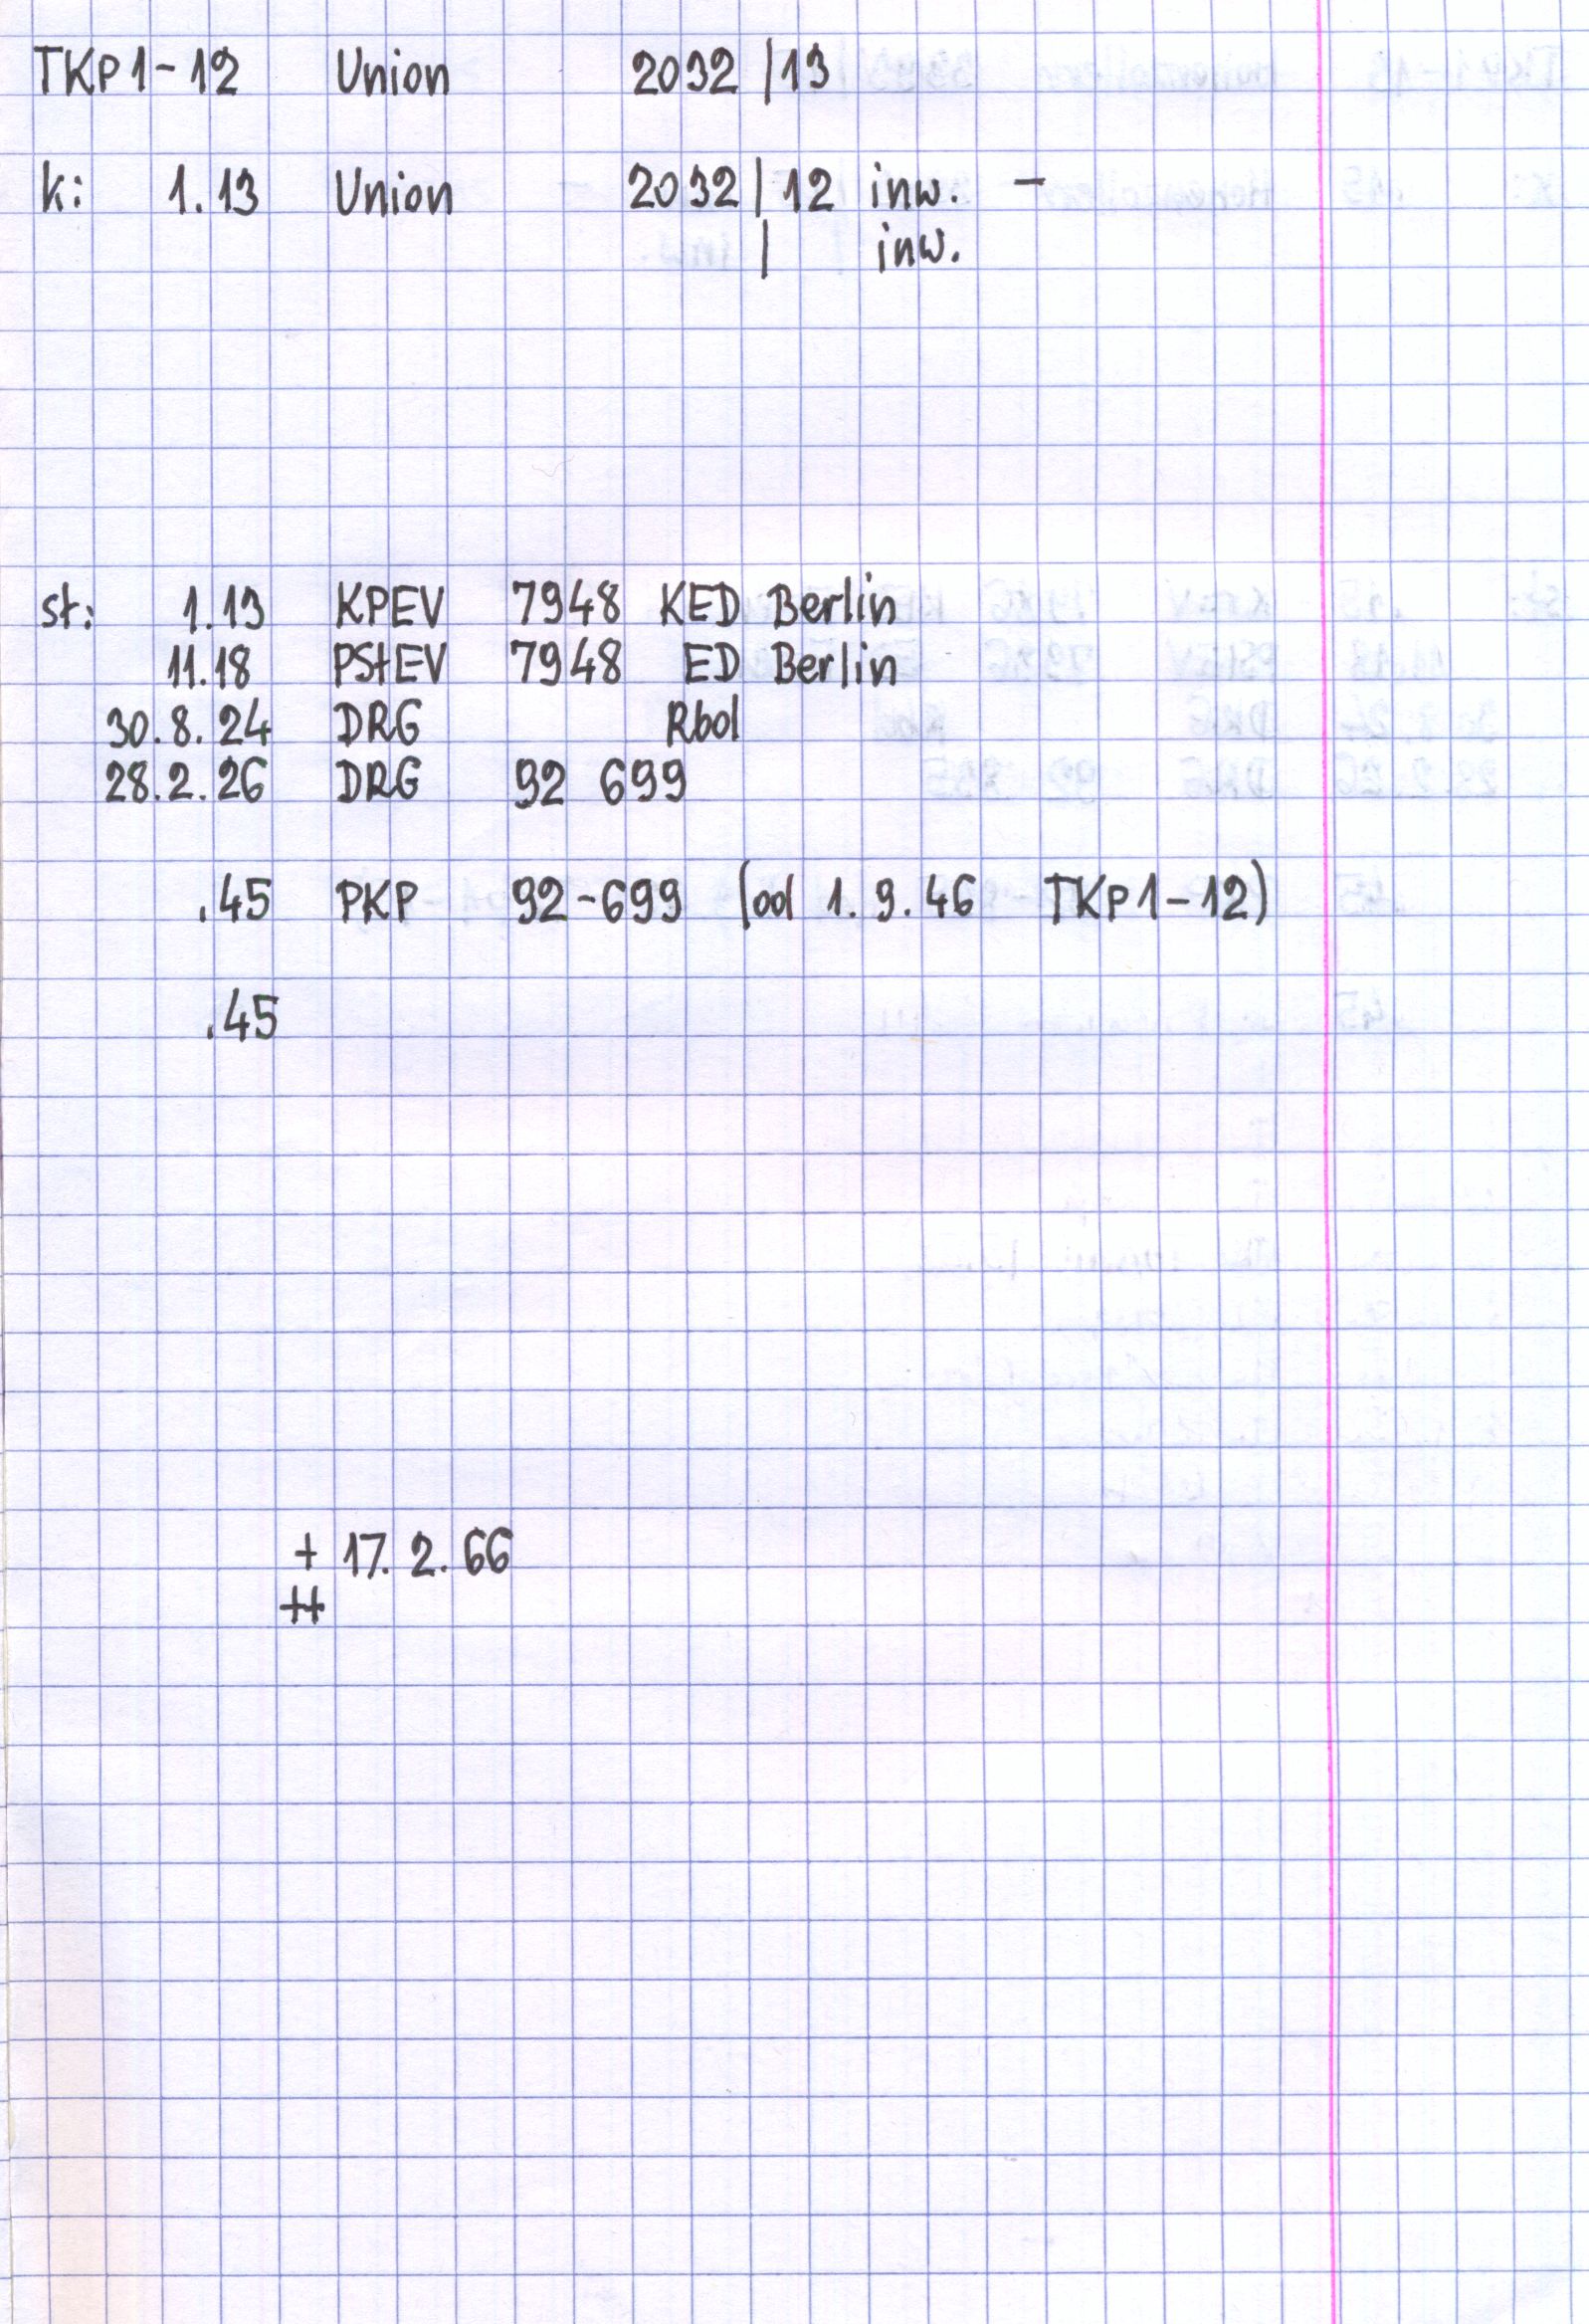 TKp1-12 Union 2032/13
k: 1.13 Union 2032/12 inw. -
/ inw.
st: 1.13 KPEV 7948 KED Berlin
11.18 PStEV 7948 ED Berlin
30.8.24 DRG Rbd
28.2.26 DRG 92 699
.45 PKP 92-699 (od 1.9.46 TKp1-12)
.45
+ 17.2.66
++